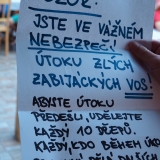 POZOR!
JSTE VE VÁŽNÉM
NEBEZPEČÍ
ÚTOKU ZLÝCH
ZABIJÁCKÝCH VOS!
ABYSTE ÚTOKU
PŘEDEŠLI, UDĚLEJTE
KAŽDÝ 10 DŘEPŮ.
KAŽDÝ, KDO BĚHEM